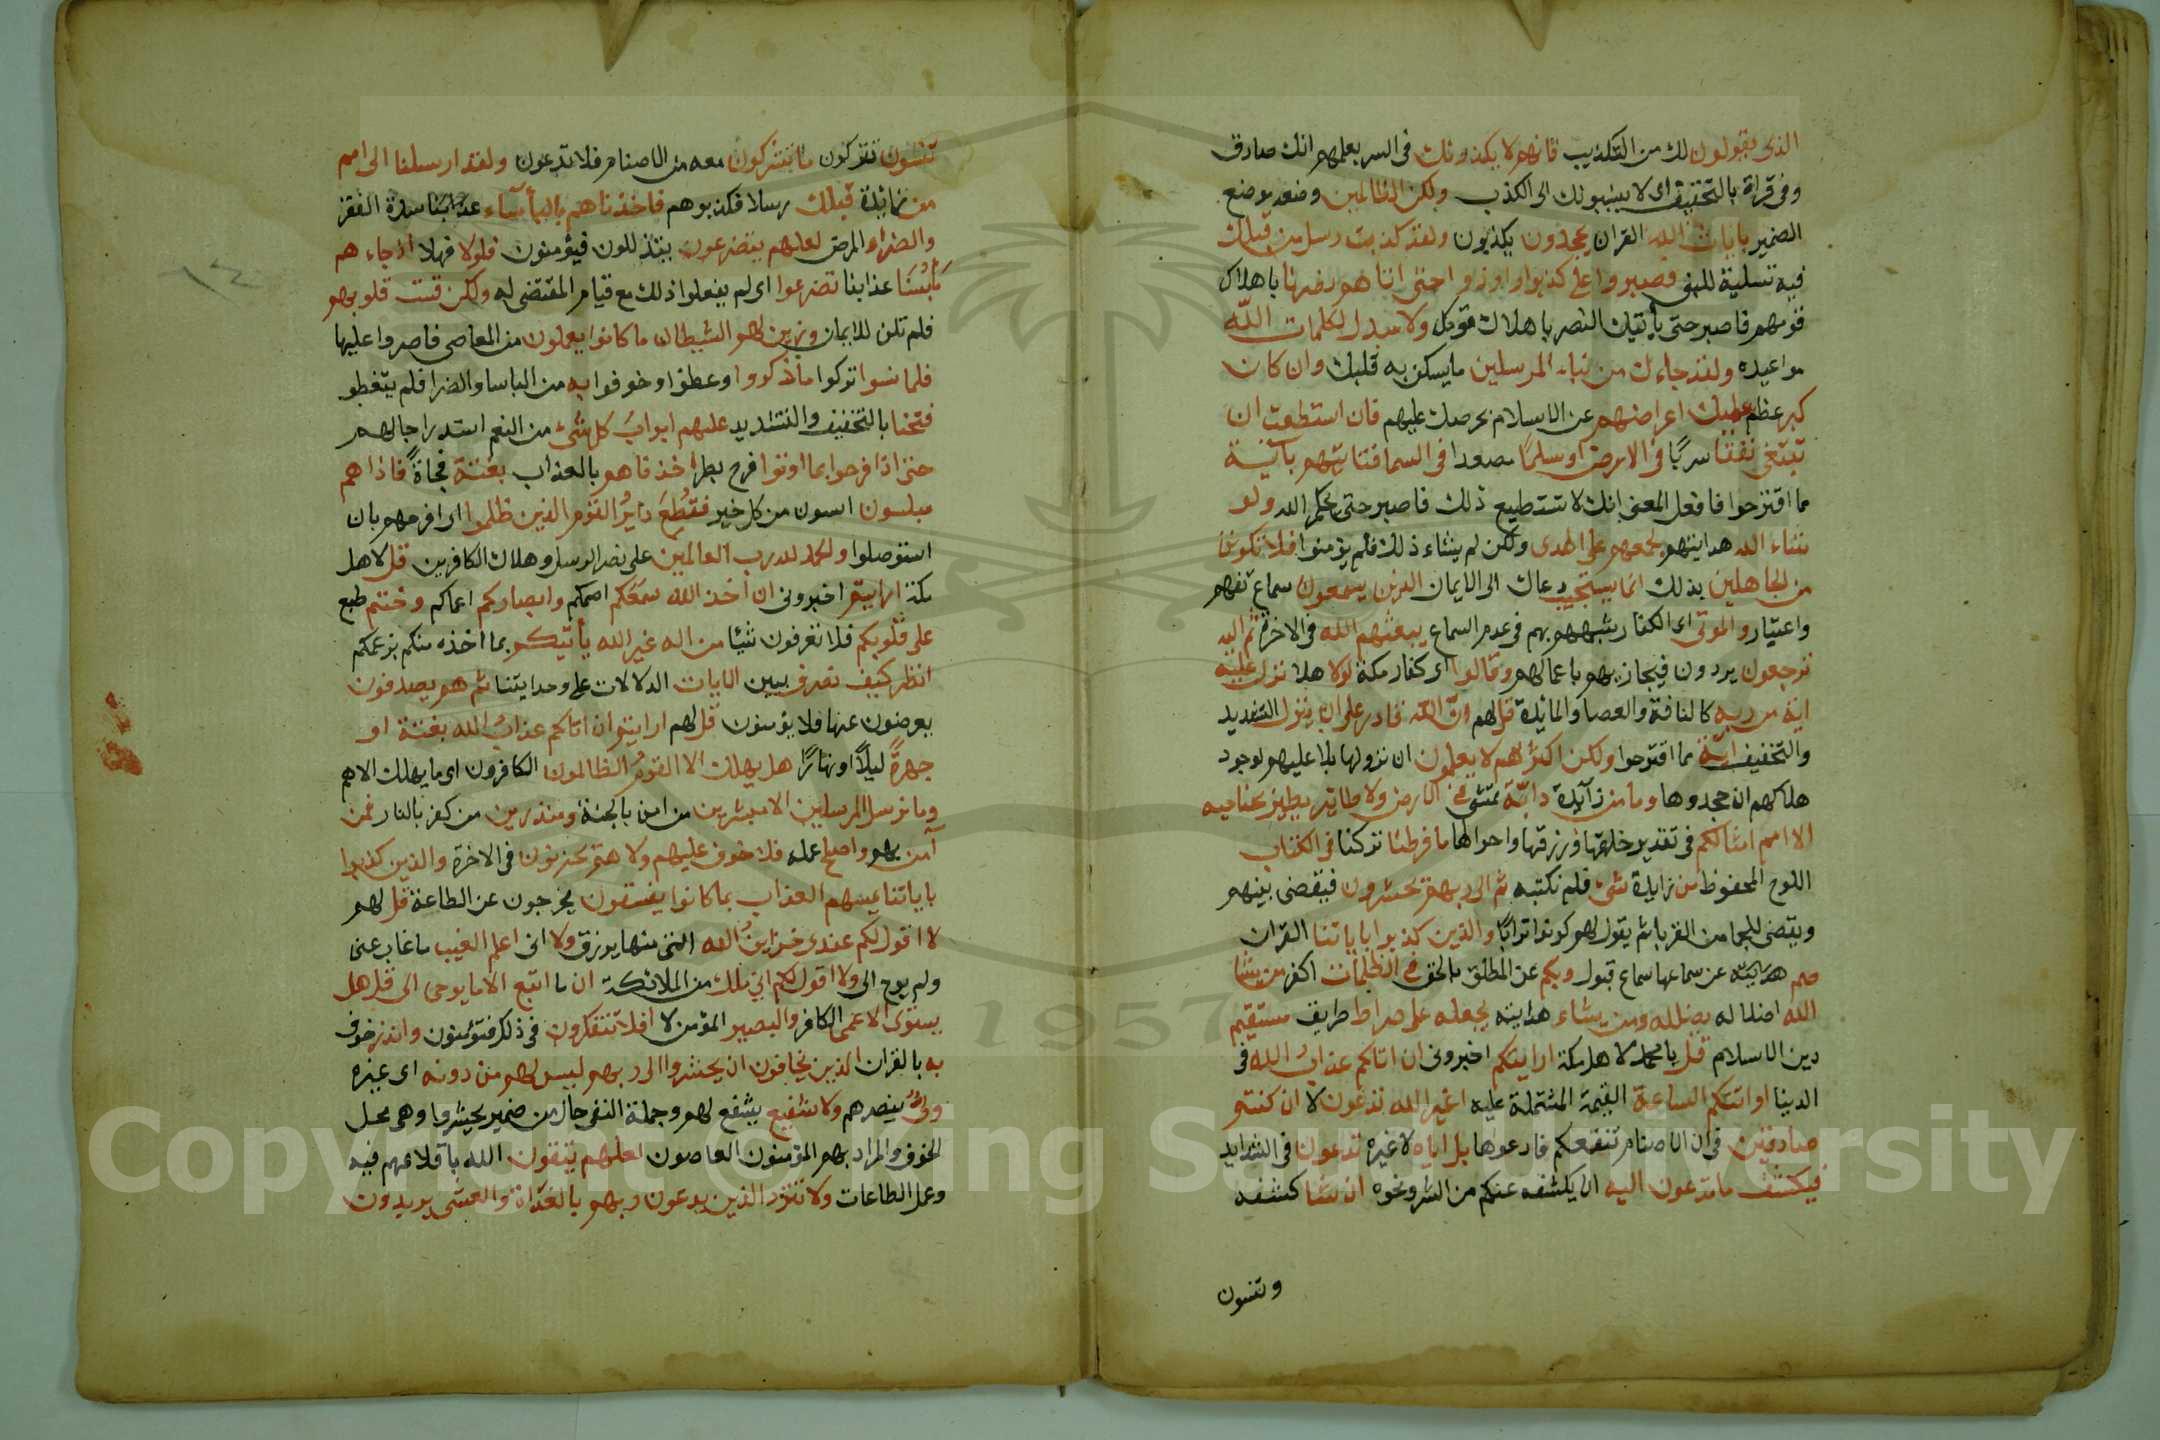 الذى يقولون لك من التكذيب فانهم لا يكذبونك فى السر يعلمهم انك صادق
وفى قراة بالتخفيف اى لا ينسبونك الى الكذب ولكن الظالمين وضعه موضع
الضمير بايات الله القران يجحدون يكذبون ولقد كذبت رسل من قبلك
فيه تسلية للنبى فصبروا على كذبوا واوذوا حتى اتاهم نصرنا باهلاك
قومهم فاصبر حتى يأتيك النصر باهلاك قومك ولا مبدل لكلمات الله
مواعيده ولقد جاءك من نباء المرسلين مايسكن به قلبك وان كان
كبر عظم عليك اعراضهم عن الاسلام بحرصك عليهم فان استطعت ان
تبتغى نفقا سربًا فى الارض او سلمًا مصعدا فى السما فتاتيهم بآية
مما اقترحوا فافعل المعنى انك لا تستطيع ذلك فاصبر حتى يحكم الله ولو
شاء الله هدايتهم لجمعهم على الهدى ولكن لم يشاء ذلك فلم يؤمنوا فلا تكونن
من الجاهلين بذلك انما يستجيب دعاك الى الايمان الذين يسمعون سماع تفهم
واعتبار والموتى اى الكفار شبههم بهم فى عدم السماع يبعثهم الله فى الاخرة ثم اليه
ترجعون يردون فيجازيهم باعمالهم وقالوا اى كفار مكة لولا هلا نزل عليه
اية من ربه كالناقة والعصا والمائدة قل لهم ان الله قادر على ان ينزل التشديد
والتخفيف اية مما اقترحوا ولكن اكثرهم لا يعلمون ان نزولها بلا عليهم لوجود
هلاكهم ان جحدوها وما من زآئدة دابة تمشى فى الارض ولا طاير يطير بجناحيه
الا امم امثالكم فى تقدير خلقها ورزقها واحوالها ما فرطنا تركنا فى الكتاب
اللوح المحفوظ من زايدة شئ فلم نكتبه ثم الى ربهم يحشرون فيقضى بينهم
ويقتص للجما من القرنا ثم يقول لهم كونوا ترابًا والذين كذبوا باياتنا القران
صم عن سماعها سماع قبول وبكم عن المطلق بالحق فى الظلمات الكفر من يشا
الله اضلاله يضلله ومن يشاء هدايته يجعله على صراط طريق مستقيم
دين الاسلام قل يا محمد لاهل مكة ارايتكم اخبرونى ان اتاكم عذاب الله فى
الدنيا او اتتكم الساعة القيمة المشتملة عليه اغير الله تدعون لا ان كنتم
صادقين فى ان الاصنام تنفعكم فادعوها بل اياه لا غيره تدعون فى الشدايد
فيكشف ماتدعون اليه ان يكشفه عنكم من الضر ونحوه ان شا كشفه
وتنسون
تنسون تتركون ما تشركون معه من الاصنام فلا تدعون ولقد ارسلنا الى امم
من زائدة قبلك رسلا فكذبوهم فاخذناهم بالبأسآء شدة الفقر
والضراء المرض لعلهم يتضرعون يتذللون فيؤمنون فلولا فهلا اذ جاءهم
بأسنا عذابنا تضرعوا اى لم يفعلوا ذلك مع قيام المقتضى له ولكن قست قلوبهم
فلم تلن للايمان وزين لهم الشيطان ما كانوا يعملون من المعاصى فاصروا عليها
فلما نسوا تركوا ما ذكروا وعظوا وخوفوا به من الباسا والضرا فلم يتعظو
فتحنا بالتخفيف والتشديد عليهم ابواب كل شئ من النعم استدراجا لهم
حتى اذا فرحوا بما اوتوا فرح بطر اخذناهم بالعذاب بغتة فجاةً فاذا هم
مبلسون ايسون من كل خير فقطع دابر القوم الذين ظلموا اى اخرهم بان
استوصلوا والحمد لله رب العالمين على نصر الرسل وهلاك الكافرين قل لاهل
مكة ارايتم اخبرونى ان اخذ الله سمعكم اصمكم وابصاركم اعماكم وختم طبع
على قلوبكم فلا تعرفون شيئا من اله غير الله يأتيكم بما اخذه منكم بزعمكم
انظر كيف نصرف نبين الايات الدلالات على وحدانيتنا ثم هم يصدفون
يعرضون عنها فلا يؤمنون قل لهم ارايتم ان اتاكم عذاب الله بغتة او
جهرةً ليلًا او نهارًا هل يهلك الا القوم الظالمون الكافرون اى ما يهلك الا هم
وما نرسل المرسلين الا مبشرين من امن بالجنة ومنذرين من كفر بالنار فمن
آمن بهم واصلح عمله فلا خوف عليهم ولا هم يحزنون فى الاخرة والذين كذبوا
باياتنا يمسهم العذاب بما كانوا يفسقون يخرجون عن الطاعة قل لهم
لا اقول لكم عندى خزاين الله التى منها يرزق ولا انى اعلم الغيب ما غاب عنى
ولم يوح الى ولا اقول لكم انى ملك من الملائكة ان ما اتبع الا ما يوحى الى قل هل
يستوى الاعمى الكافر والبصير المؤمن لا افلا تتفكرون فى ذلك فتؤمنون وانذر خوف
به بالقران الذين يخافون ان يحشروا الى ربهم ليس لهم من دونه اى غيره
ولى ينصرهم ولا شفيع يشفع لهم وجملة النفى حال من ضمير يحشروا وهى محل
الخوف والمراد بهم المؤمنون العاصون لعلهم يتقون الله باقلاعهم فيه
وعمل الطاعات ولا تطرد الذين يدعون ربهم بالغداة والعشى يريدون
Copyright © King Saud University
1957